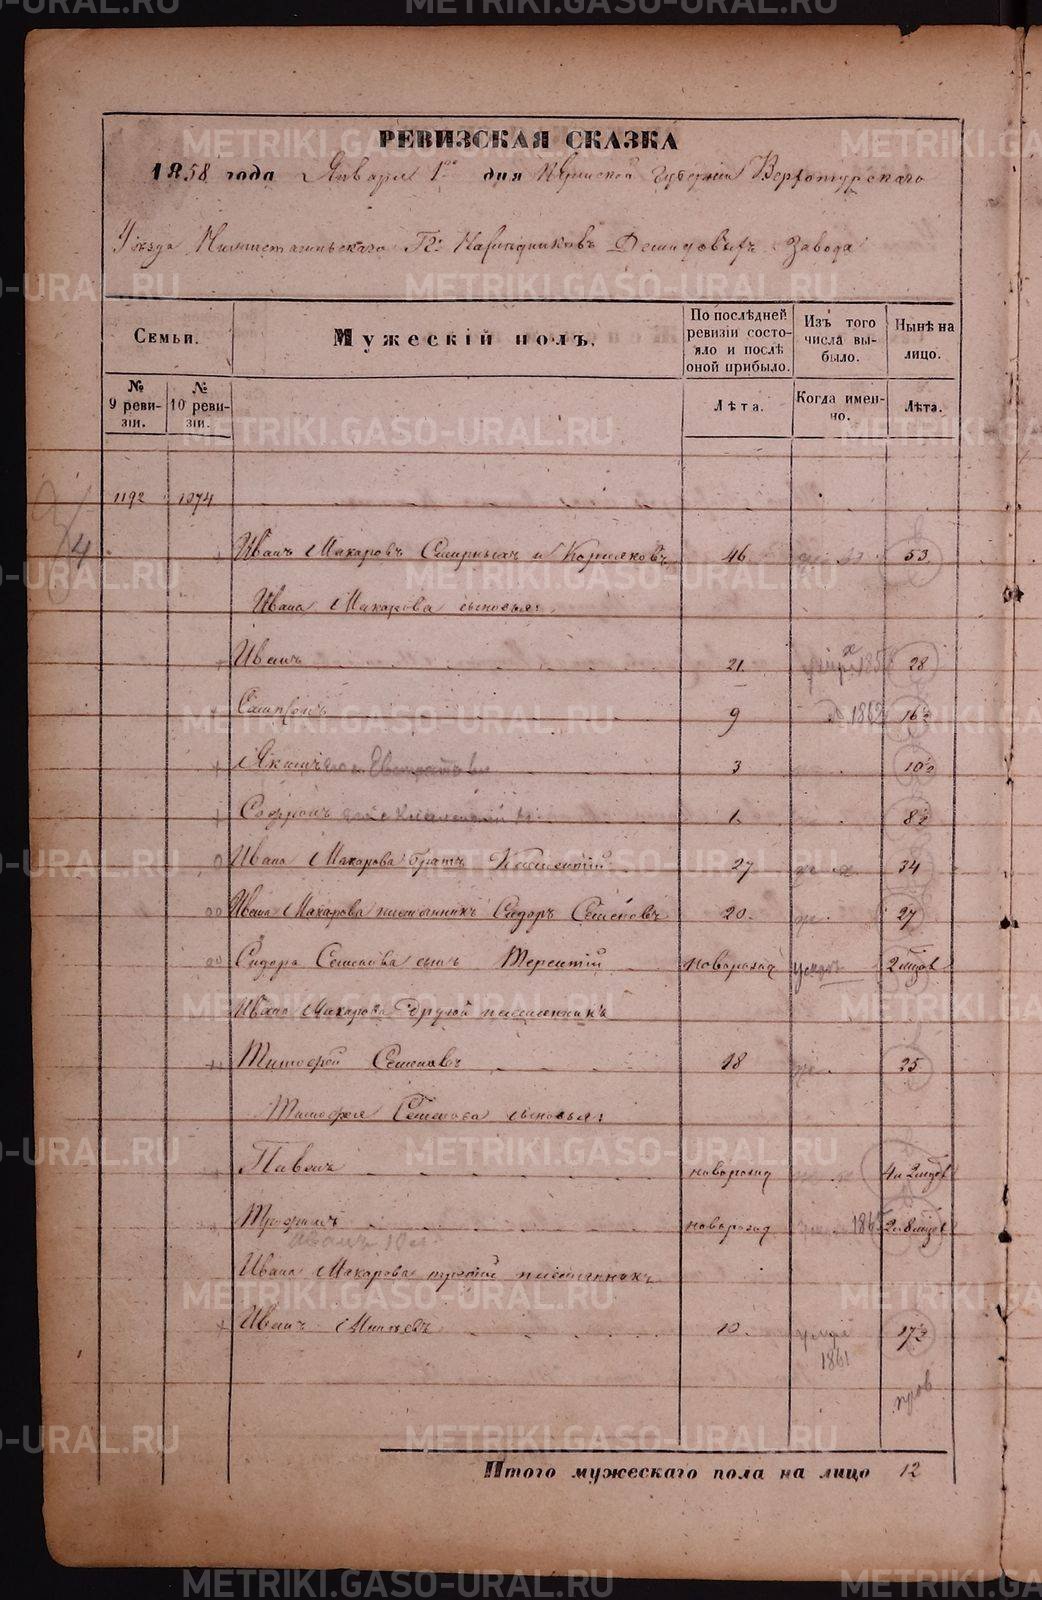 METRIKI.GASO-URAL.RU
РЕВИЗСКАЯ СКАЗКА
1858 года Января 1го дня Пермской Губернии Верхотурскаго
Уѣзда Нижнетагильскаго Гг. Наслѣдниковъ Демидовыхъ Завода
Семьи.
Мужескій полъ.
По послѣдней ревизіи состояло и послѣ оной прибыло.
Изъ того числа выбыло.
Нынѣ на лицо.
№ 9 ревизіи.
№ 10 ревизіи.
Лѣта.
Когда именно.
Лѣта.
1192 1074
Иванъ Макаровъ и 46 53
Ивана Макарова сыновья:
Иванъ 21 1858 28
Сампсонъ 9 1862 16½
Якимъ 3 10½
Софронъ 1 8½
Ивана Макарова братъ 27 34
Ивана Макарова племянникъ Сидоръ Семеновъ 20 27
Сидора Семенова сынъ Терентій новорожд 2 мѣсяцов
Ивана Макарова другой племянникъ
Тимофей Семеновъ 18 25
Тимофея Семенова сыновья:
Павелъ новорожд 4 и 2 мѣсяцов
Трофимъ новорожд 186 2 и 8 мѣсяцов
Иванъ
Ивана Макарова третій племянникъ
Иванъ 10 17½
1861
Итого мужескаго пола на лицо 12